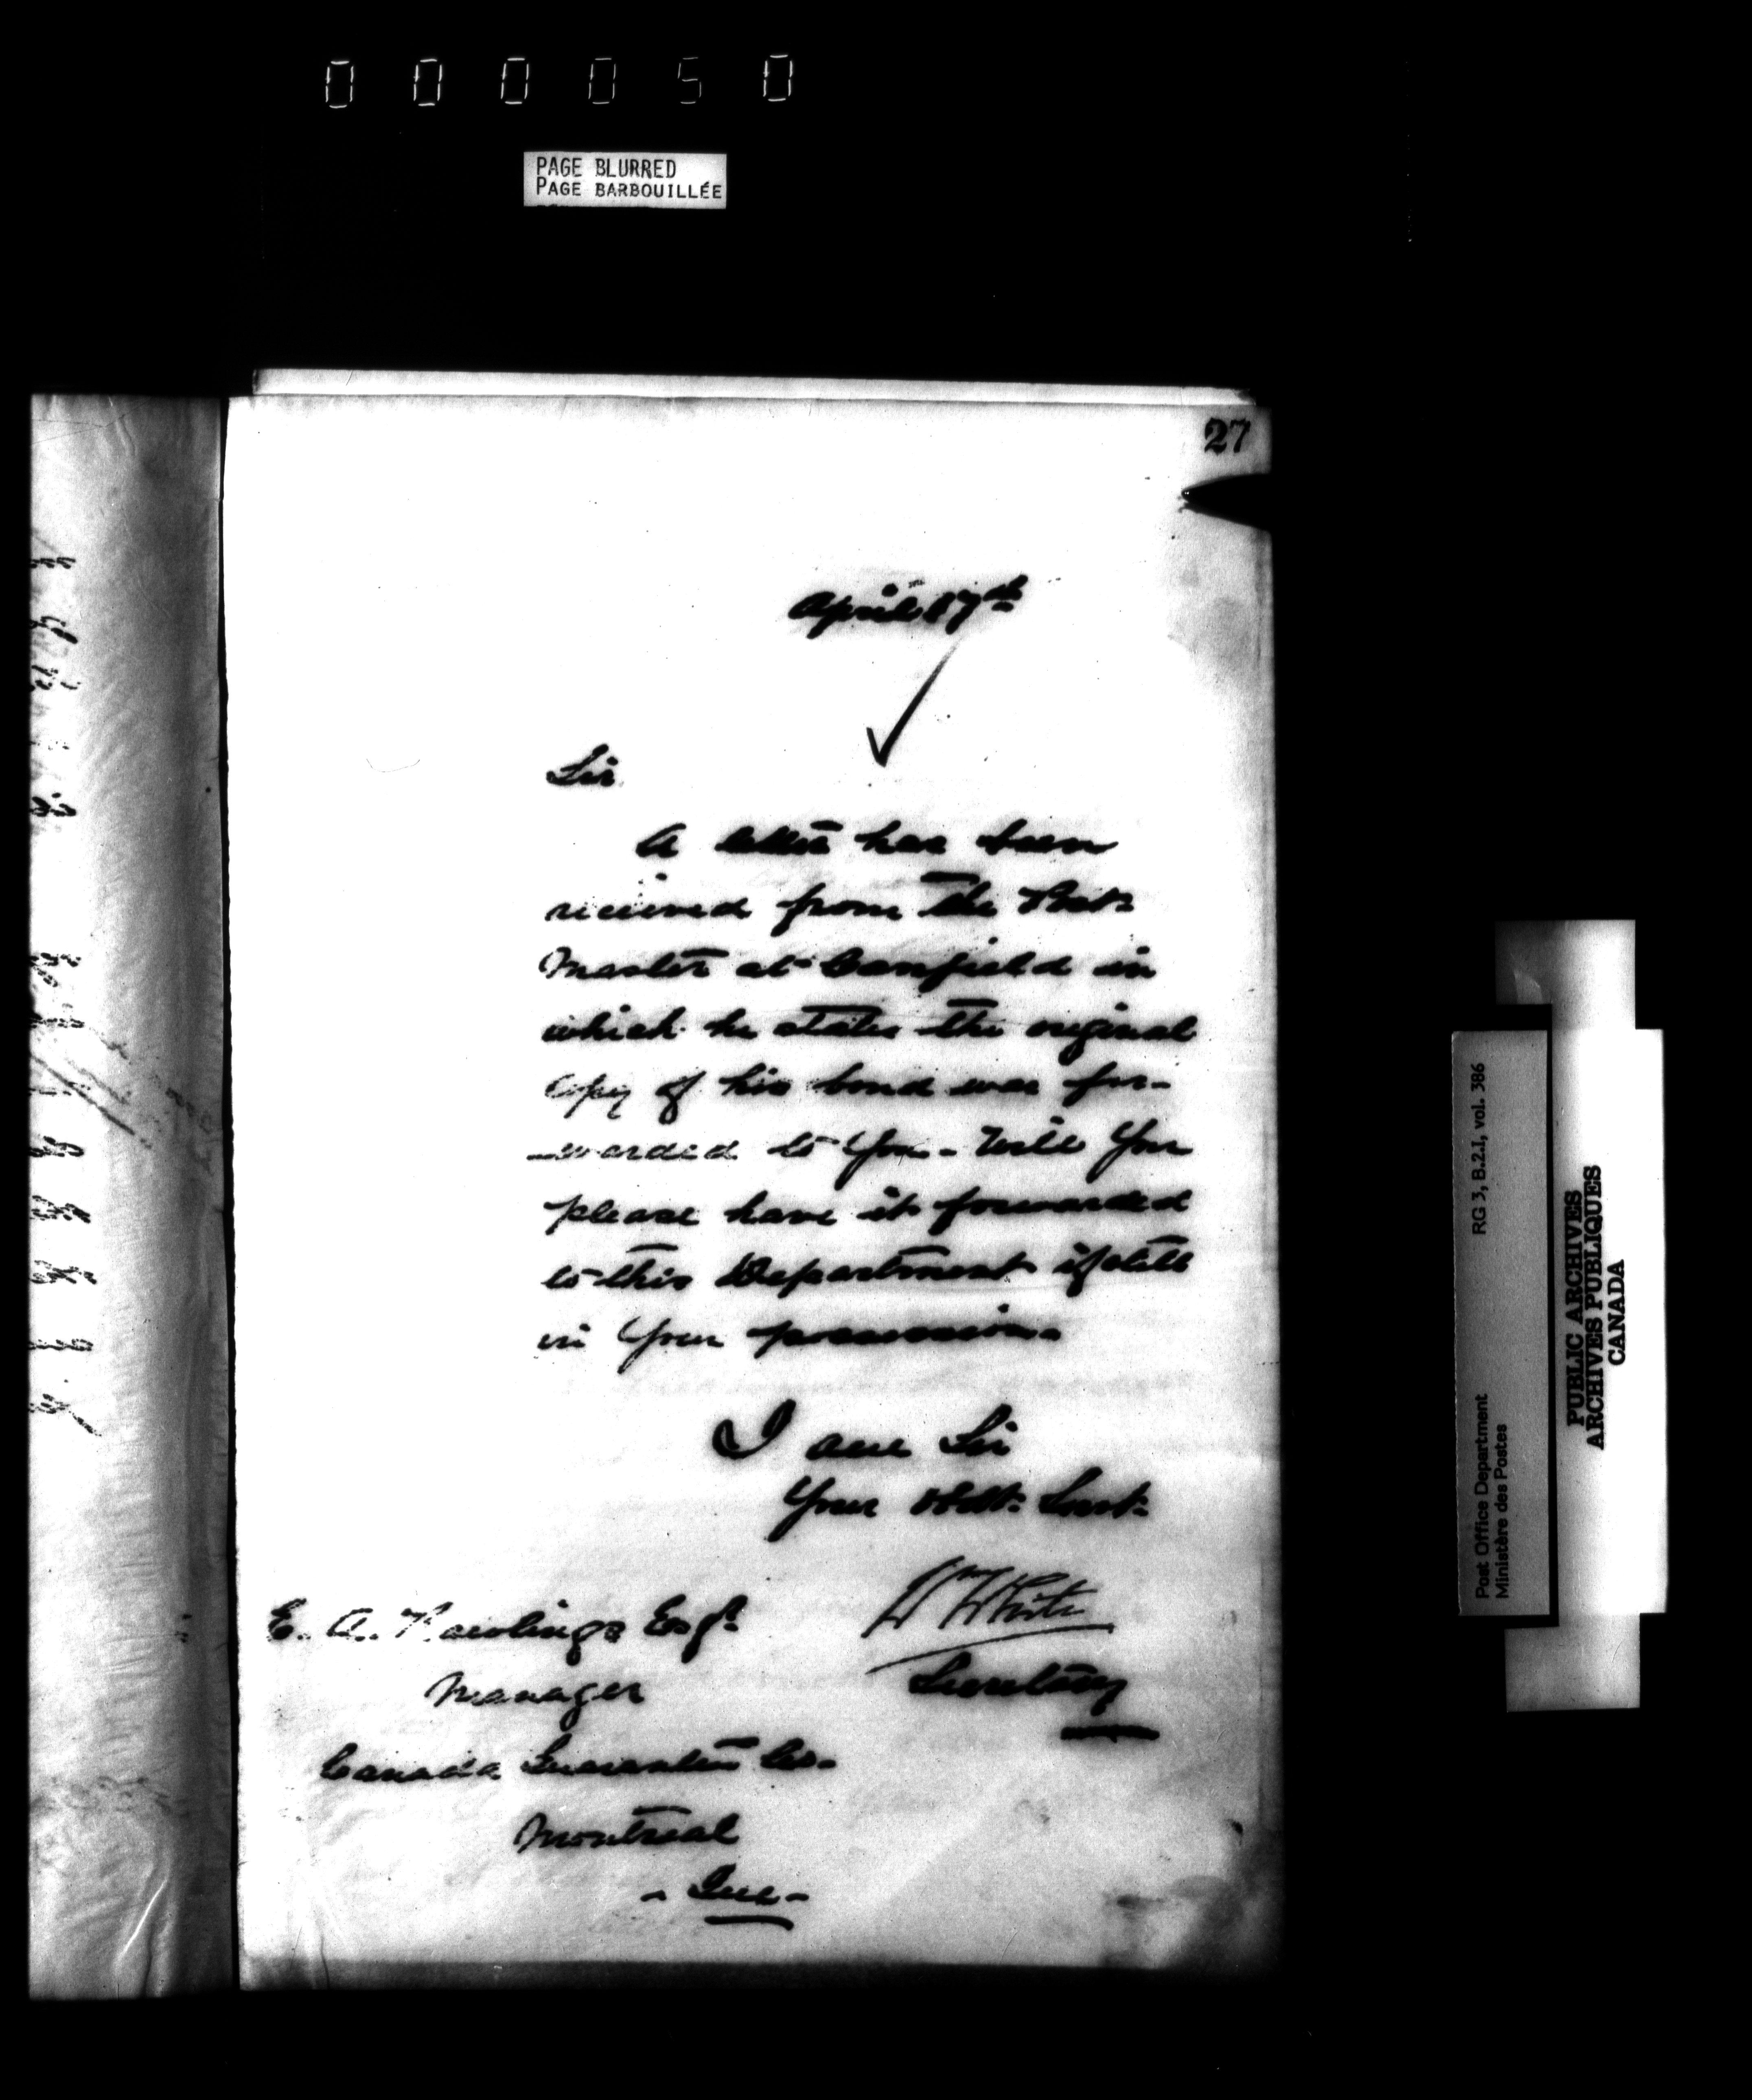 000050
PAGE BLURRED
PAGE BARBOUILLÉE
27
April 17th
Sir
A letter has been
received from the Post-
Master at Canfield in
which he states the original
Copy of his bond was for-
-warded to You - Will You
please have it forwarded
to this Department if still
in Your possession.
I am Sir
Your Obdt. Servt.
Wm White
Secretary
E. A. Rawlings Esqr.
Manager
Canada Guarantee Co.
Montreal
- Que -
Post Office Department RG 3, B.2.I, vol. 386
Ministère des Postes
PUBLIC ARCHIVES
ARCHIVES PUBLIQUES
CANADA